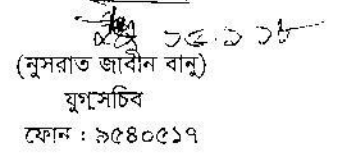 ১৫.১ ১৮
(নুসরাত জাবীন বানু)
যুগ্মসচিব
ফোন : ৯৫৪০৫১৭